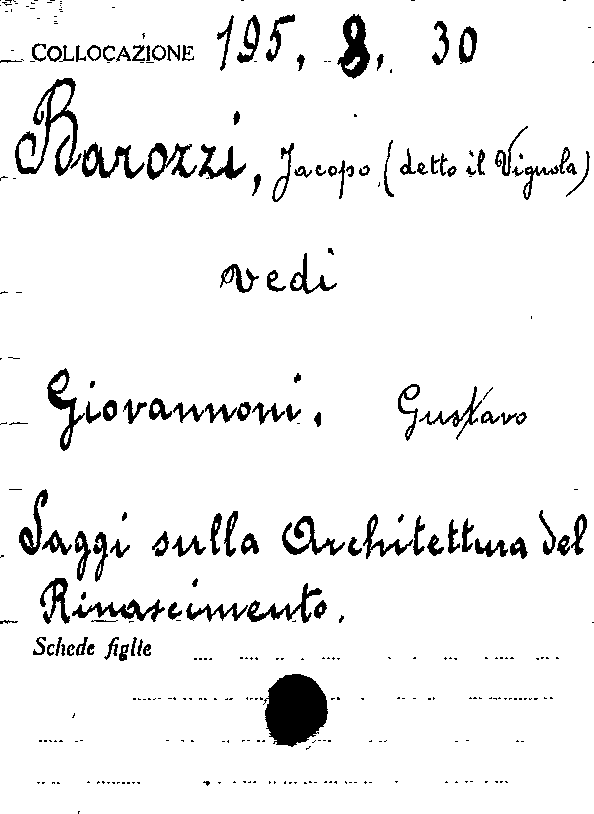 COLLOCAZIONE 195. 8. 30
Barozzi, Jacopo (detto il Vignola)
vedi
Giovannoni, Gustavo
Saggi sulla Architettura del
Rinascimento.
Schede figlie